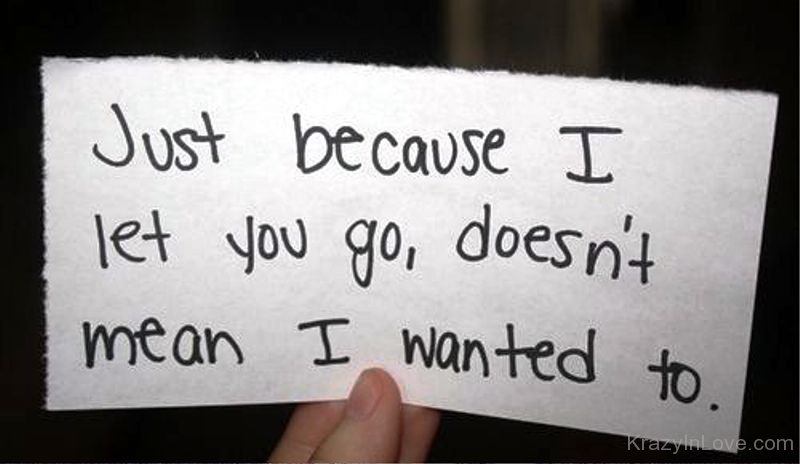 Just because I
let you go, doesn't
mean I wanted to.
KrazyInLove.com